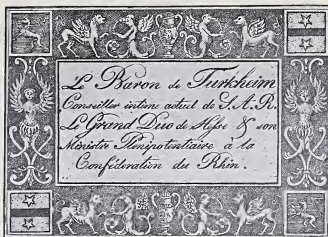 Le Baron de Turkheim
Conseiller intime actuel de S. A. R.
Le Grand Duc de Hesse & son
Ministre Plenipotentiaire à la
Confédération du Rhin.